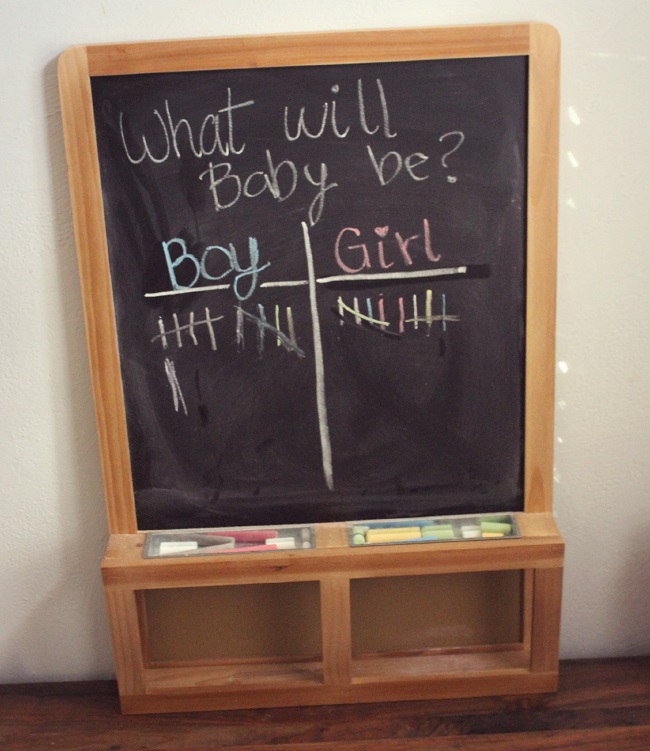 What will
Baby be?
Boy Girl